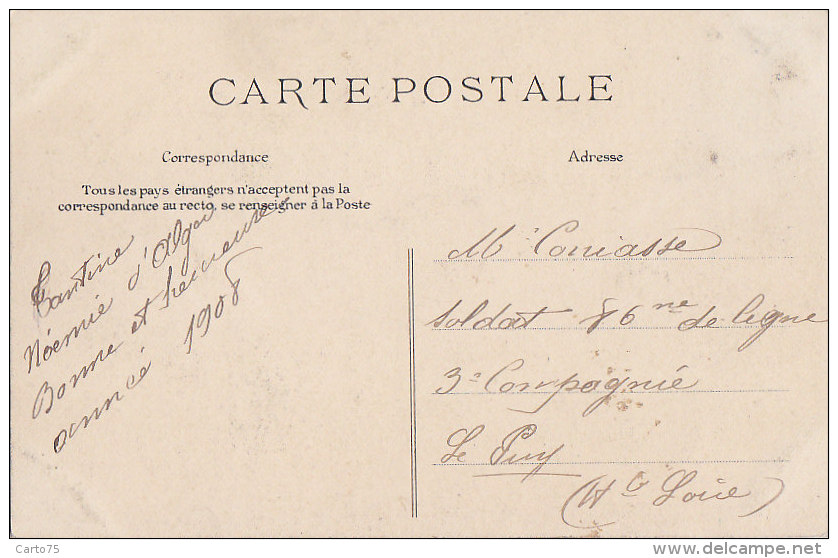 CARTE POSTALE
Correspondance
Tous les pays étrangers n'acceptent pas la
correspondance au recto, se renseigner à la Poste
Tantine
Noémie d'Alger
Bonne et heureuse
année 1908
Adresse
Mr Coniasse
Soldat 86me de ligne
3e Compagnie
Le Puy
(Hte Loire)
Carto75
www.delcampe.net